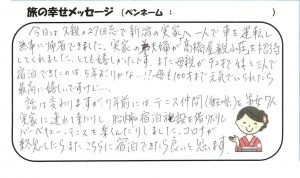 旅の幸せメッセージ (ペンネーム： )
今日は父親の27回忌で新潟の実家へ一人で車を運転し
無事に帰省できました。実家の弟夫婦が「高橋屋観山荘」を招待
してくれました。とても嬉しかったです。また母親が92才で妹と三人で
宿泊できたのは5年ぶりかな…!?母も100才まで元気でいられたら
最高に嬉しいですけど…。
話は変わりますが7年前にはテニス仲間(社団)と男女7人
実家に連れて来たりし、胎内宿泊施設を借りたり
バーベキュー、テニスを楽しんだりしました。コロナが
終息したらまたこちらに宿泊できたら良いと思います。